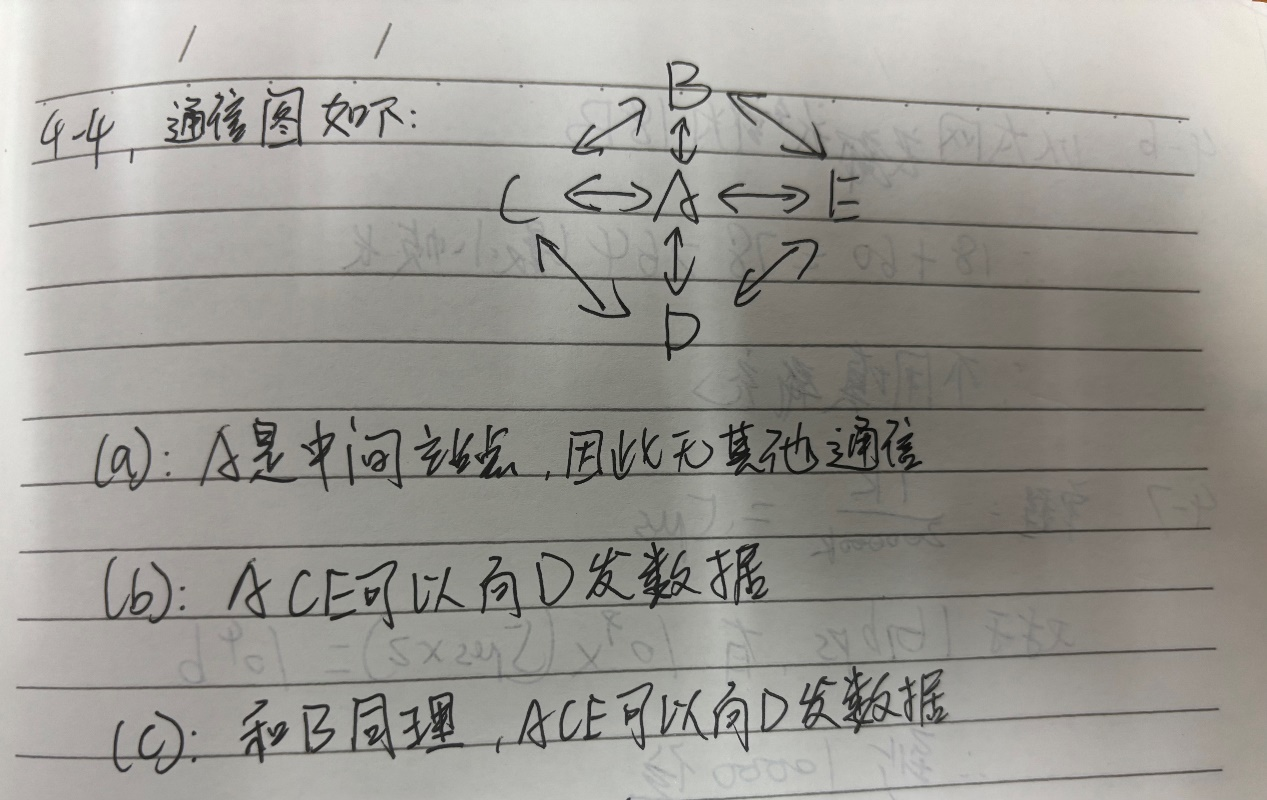 4-4, 通信图如下:
B
C A E
D
(a): A是中间站点,因此无其他通信
(b): ACE可以向D发数据
(c): 和B同理,ACE可以向D发数据